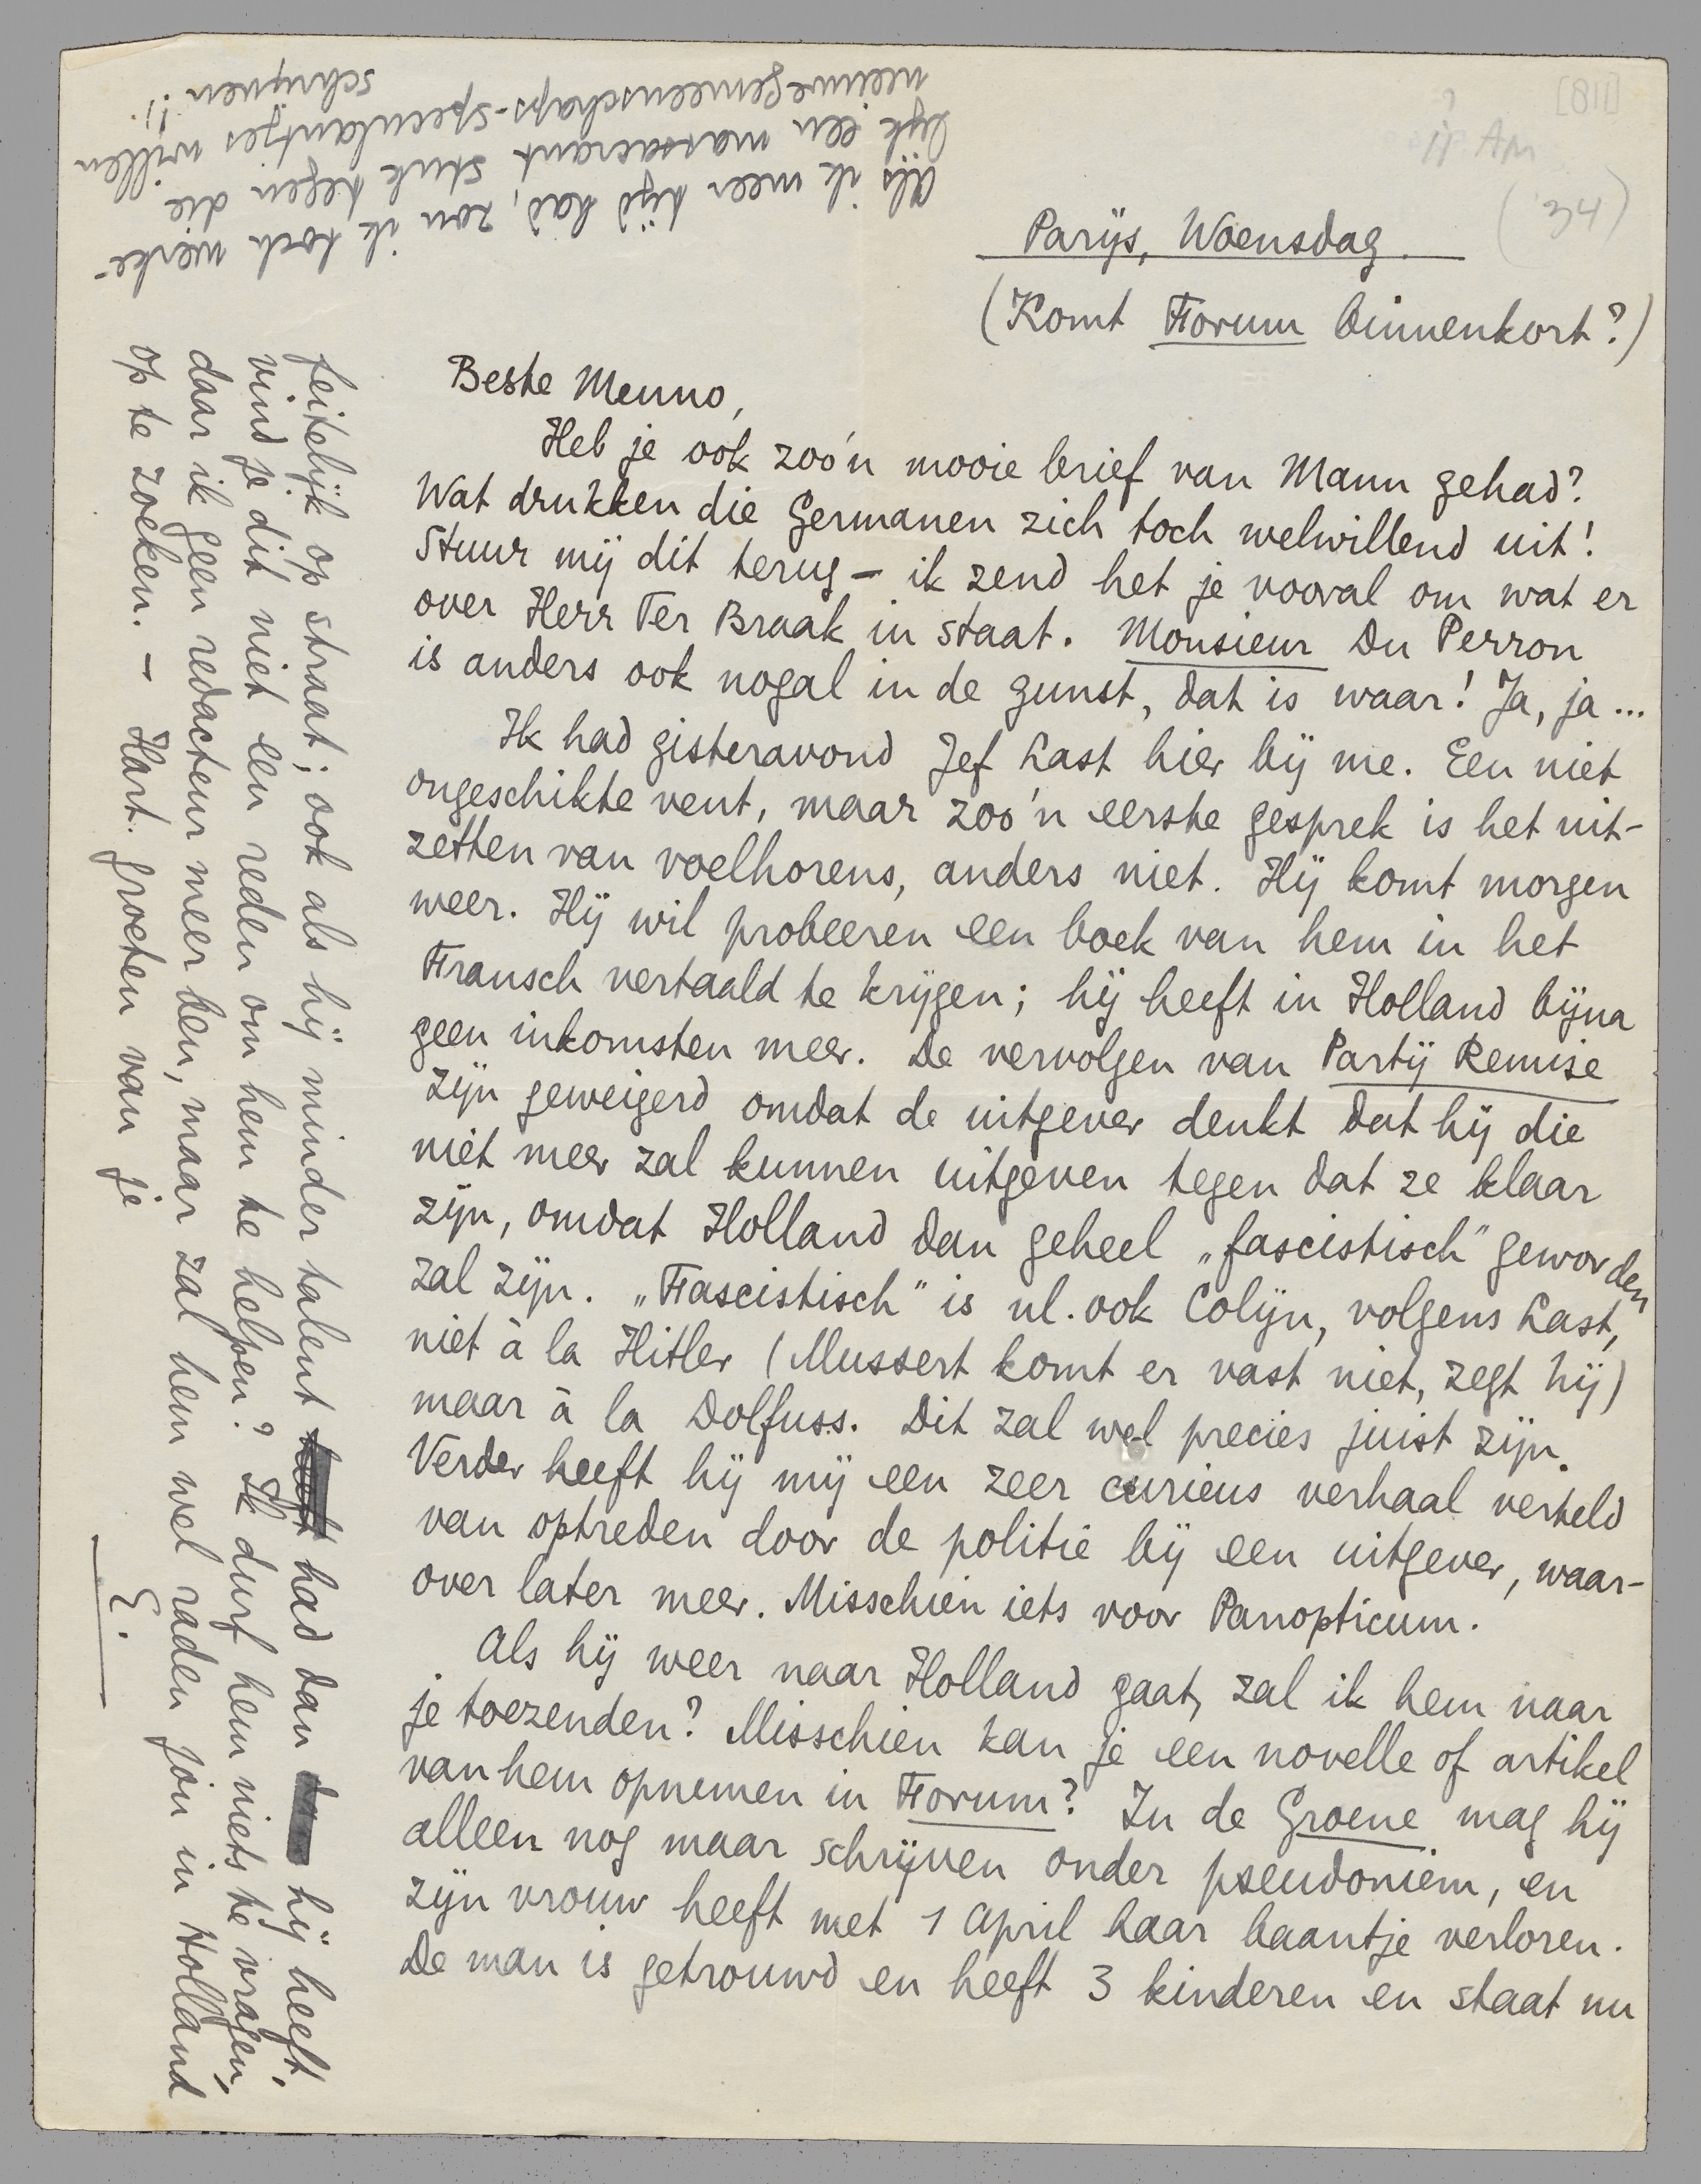 [811]
? 11 Apr
('34)
Parijs, Woensdag.
(Komt Forum binnenkort?)
Beste Menno,
Heb je ook zoo'n mooie brief van Mann gehad?
Wat drukken die Germanen zich toch welwillend uit!
Stuur mij dit terug — ik zend het je vooral om wat er
over Herr Ter Braak in staat. Monsieur Du Perron
is anders ook nogal in de gunst, dat is waar! Ja, ja ...
Ik had gisteravond Jef Last hier bij me. Een niet
ongeschikte vent, maar zoo'n eerste gesprek is het uit-
zetten van voelhorens, anders niet. Hij komt morgen
weer. Hij wil probeeren een boek van hem in het
Fransch vertaald te krijgen; hij heeft in Holland bijna
geen inkomsten meer. De vervolgen van Partij Remise
zijn geweigerd omdat de uitgever denkt dat hij die
niet meer zal kunnen uitgeven tegen dat ze klaar
zijn, omdat Holland dan geheel „fascistisch" geworden
zal zijn. „Fascistisch" is nl. ook Colijn, volgens Last,
niet à la Hitler (Mussert komt er vast niet, zegt hij)
maar à la Dolfuss. Dit zal wel precies juist zijn.
Verder heeft hij mij een zeer curieus verhaal verteld
van optreden door de politie bij een uitgever, waar-
over later meer. Misschien iets voor Panopticum.
Als hij weer naar Holland gaat, zal ik hem naar
je toezenden? Misschien kan je een novelle of artikel
van hem opnemen in Forum? In de Groene mag hij
alleen nog maar schrijven onder pseudoniem, en
zijn vrouw heeft met 1 April haar baantje verloren.
De man is getrouwd en heeft 3 kinderen en staat nu
feitelijk op straat; ook als hij minder talent had dan hij heeft,
vind je dit niet een reden om hem te helpen? Ik durf hem niets te vragen,
daar ik geen redacteur meer ben, maar zal hem wel raden jou in Holland
op te zoeken. — Hart. groeten van je
E.
Als ik meer tijd had, zou ik toch werke-
lijk een massacrant stuk tegen die
nieuwe Gemeenschaps-speculantjes willen
schrijven!